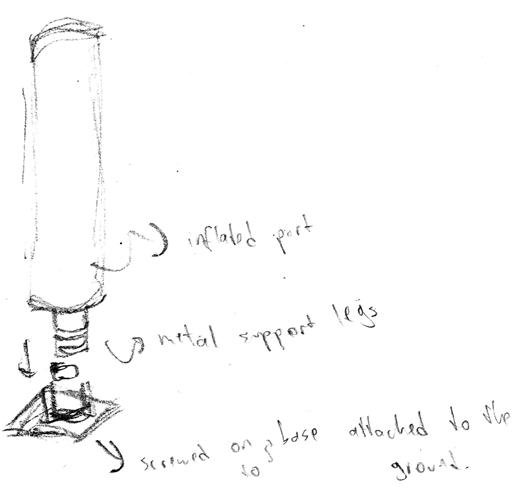 inflated part
metal support legs
screwed on a base attached to the
to ground.